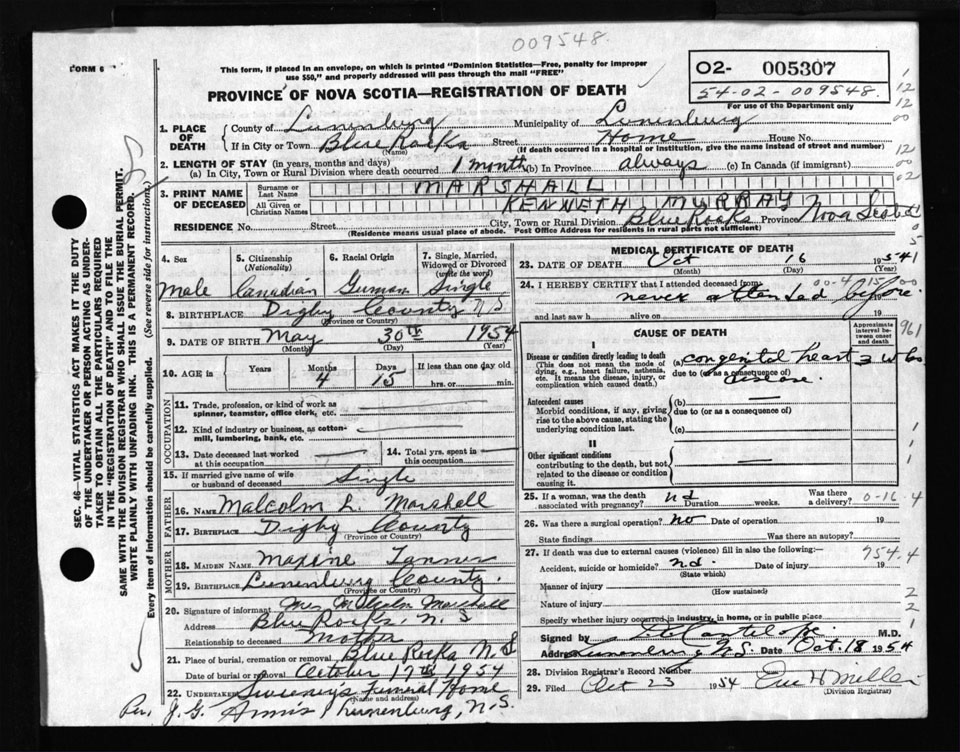 009548.
FORM 6
This form, if placed in an envelope, on which is printed "Dominion Statistics—Free, penalty for improper
use $50," and properly addressed will pass through the mail "FREE"
02- 005307
54-02-009548.
For use of the Department only
PROVINCE OF NOVA SCOTIA—REGISTRATION OF DEATH
1. PLACE OF DEATH
County of Lunenburg Municipality of Lunenburg
If in City or Town Blue Rocks Street Home House No.
(Name) (If death occurred in a hospital or institution, give the name instead of street and number)
2. LENGTH OF STAY (in years, months and days)
(a) In City, Town or Rural Division where death occurred 1 month (b) In Province always (c) In Canada (if immigrant)
3. PRINT NAME OF DECEASED
Surname or Last Name MARSHALL
All Given or Christian Names KENNETH MURRAY
RESIDENCE No. Street City, Town or Rural Division Blue Rocks Province Nova Scotia
(Residence means usual place of abode. Post Office Address for residents in rural parts not sufficient)
SEC. 46—VITAL STATISTICS ACT MAKES IT THE DUTY
OF THE UNDERTAKER OR PERSON ACTING AS UNDER-
TAKER TO OBTAIN ALL THE PARTICULARS REQUIRED
IN THE "REGISTRATION OF DEATH" AND TO FILE THE
SAME WITH THE DIVISION REGISTRAR WHO SHALL ISSUE THE BURIAL PERMIT.
WRITE PLAINLY WITH UNFADING INK. THIS IS A PERMANENT RECORD.
Every item of information should be carefully supplied. (See reverse side for instructions)
4. Sex
Male
5. Citizenship
(Nationality)
Canadian
6. Racial Origin
German
7. Single, Married,
Widowed or Divorced
(write the word)
Single
8. BIRTHPLACE Digby County N.S.
(Province or Country)
9. DATE OF BIRTH May 30th 1954
(Month) (Day) (Year)
10. AGE in Years Months 4 Days 15 If less than one day old
hrs. or min.
OCCUPATION
11. Trade, profession, or kind of work as
spinner, teamster, office clerk, etc.
12. Kind of industry or business, as cotton-
mill, lumbering, bank, etc.
13. Date deceased last worked
at this occupation
14. Total yrs. spent in
this occupation
15. If married give name of wife
or husband of deceased Single
FATHER
16. NAME Malcolm L. Marshall
17. BIRTHPLACE Digby County
(Province or Country)
MOTHER
18. MAIDEN NAME Maxine Tanner
19. BIRTHPLACE Lunenburg County.
(Province or Country)
20. Signature of informant Mrs Malcolm Marshall
Address Blue Rocks, N.S
Relationship to deceased Mother
21. Place of burial, cremation or removal Blue Rocks N.S
Date of burial or removal October 17th 1954
22. UNDERTAKER Sweeneys Funeral Home
(Name and address)
Per. J. G. Annis Lunenburg, N.S.
MEDICAL CERTIFICATE OF DEATH
23. DATE OF DEATH Oct 16 1954
(Month) (Day) (Year)
24. I HEREBY CERTIFY that I attended deceased from
never attended before.
and last saw h alive on 19
CAUSE OF DEATH
Approximate
interval be-
tween onset
and death
I
Disease or condition directly leading to death
(This does not mean the mode of
dying, e.g., heart failure, asthenia,
etc. It means the disease, injury, or
complication which caused death.)
(a) congenital heart
due to (or as a consequence of)
disease.
Antecedent causes
Morbid conditions, if any, giving
rise to the above cause, stating the
underlying condition last.
(b)
due to (or as a consequence of)
(c)
II
Other significant conditions
contributing to the death, but not
related to the disease or condition
causing it.
25. If a woman, was the death
associated with pregnancy? Duration weeks. Was there
a delivery?
0-16-4
26. Was there a surgical operation? no Date of operation 19
State findings Was there an autopsy?
27. If death was due to external causes (violence) fill in also the following:—
954.4
Accident, suicide or homicide? Date of injury 19
(State which)
Manner of injury
(How sustained)
Nature of injury
Specify whether injury occurred in industry, in home, or in public place
Signed by M.D.
Address Lunenburg N.S. Date Oct. 18 1954
28. Division Registrar's Record Number
29. Filed Oct 23 1954
(Division Registrar)